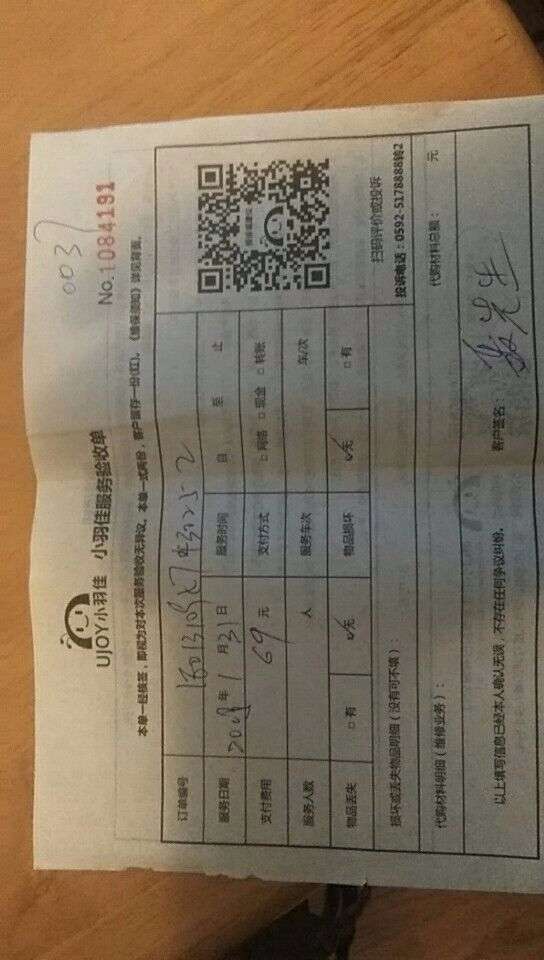 0037
UJOY小羽佳 小羽佳服务验收单
No.1084191
本单一经核签，即视为对本次服务验收无异议。本单一式两份，客户留存一份(红)。《维保须知》详见背面。
订单编号
服务日期 2018年 1 月 31 日 服务时间 自 至 止
支付费用 69 元 支付方式 □网络 □现金 □转账
服务人数 人 服务车次 车/次
物品丢失 □有 ☑无 物品损坏 ☑无 □有
扫码评价或投诉
投诉电话：0592-5178888转2
损坏或丢失物品明细（没有可不填）：
代购材料明细（维修业务）： 代购材料总额： 元
以上填写信息已经本人确认无误，不存在任何争议纠纷。 客户签名： 先生